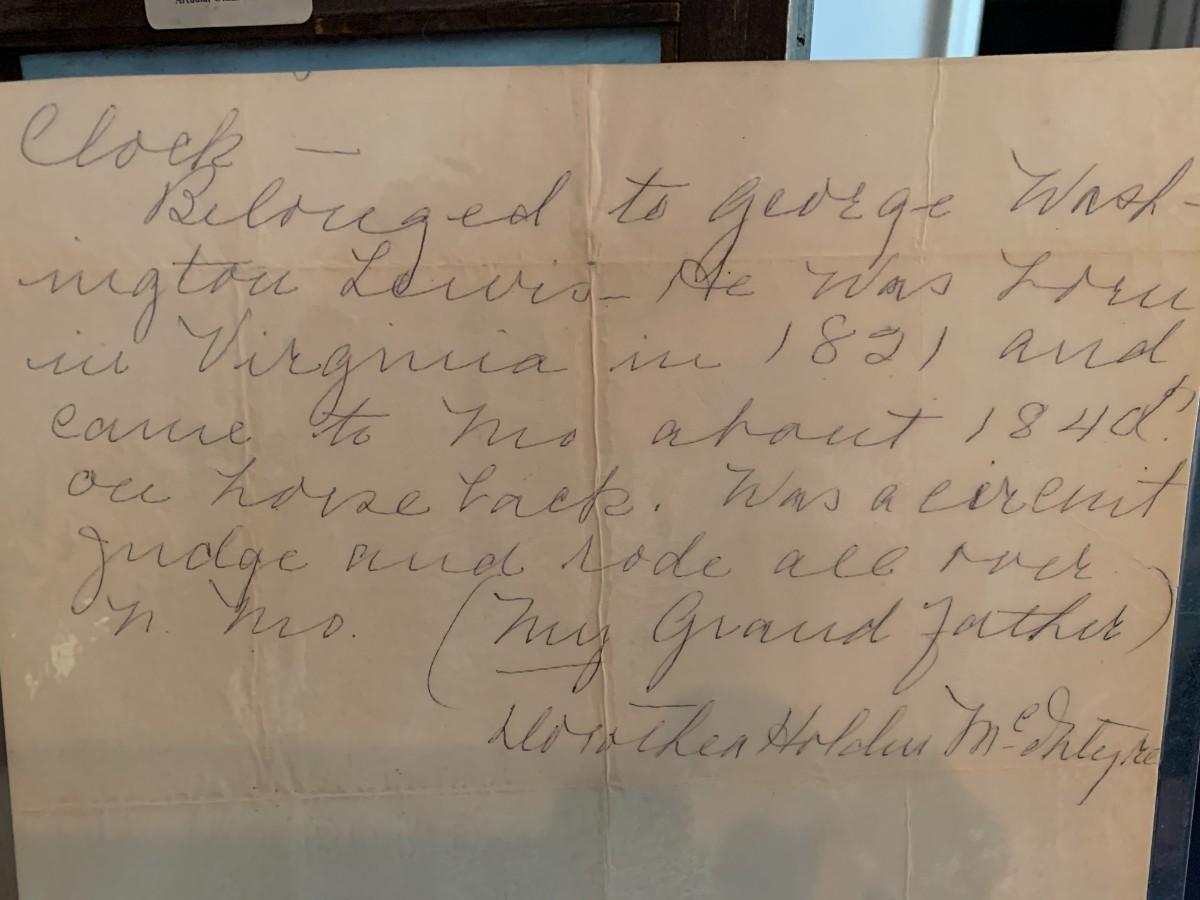 Clock —
Belonged to George Wash-
ington Lewis - He was born
in Virginia in 1821 and
came to Mo about
on horse back. Was a circuit
Judge and rode all over
N. Mo. (My Grand father)
Dorothea Holden McIntyre